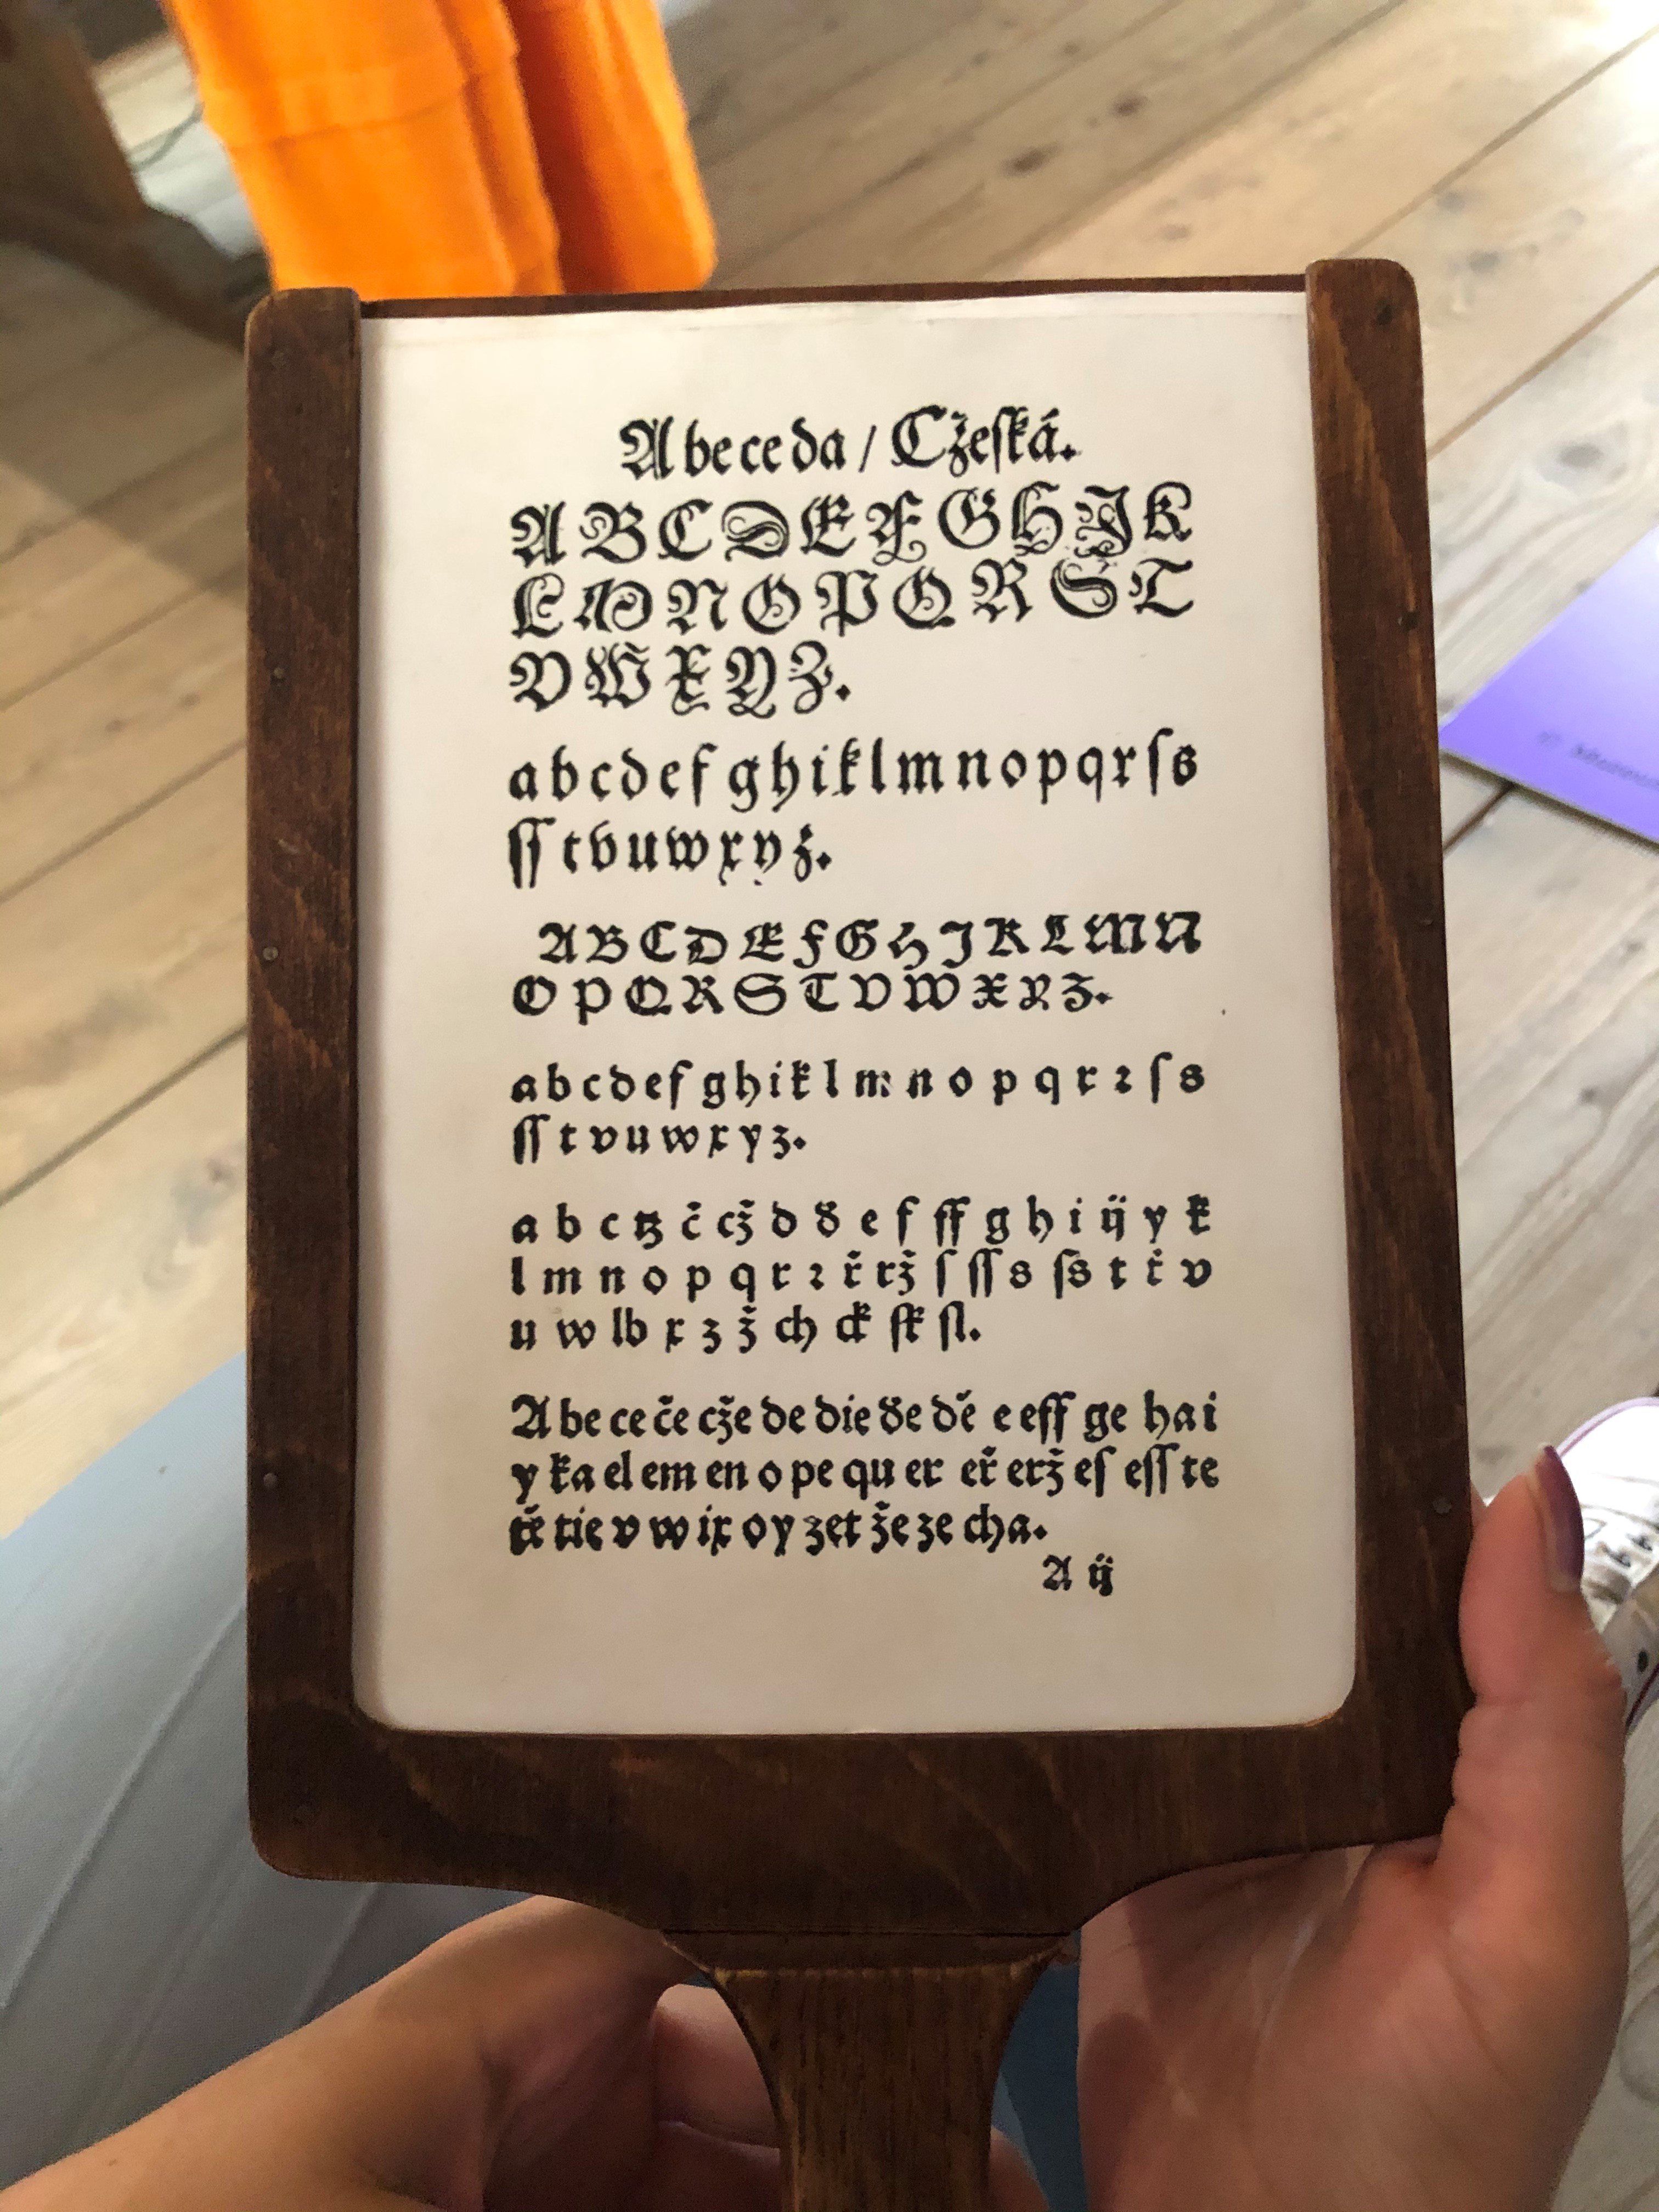 Abeceda / Cžeſká.
A B C D E F G H J K
L M N O P Q R S T
V W X Y Z.
a b c d e f g h i k l m n o p q r ſ s
ſſ t v u w x y z.
A B C D E F G H J K L M N
O P Q R S T V W X Y Z.
a b c d e f g h i k l m n o p q r ꝛ ſ s
ſſ t v u w x y z.
a b c tz č cž d ď e f ff g h i ij y k
l m n o p q r ꝛ ř rž ſ ſſ s ſs t ť v
u w lb x z ž ch ck ſk ſl.
A be ce če cže de die ďe dě e eff ge ha i
y ka el em en o pe qu er eř erž eſ eſſ te
tě tie v w ix oy zet že ze cha.
A ij